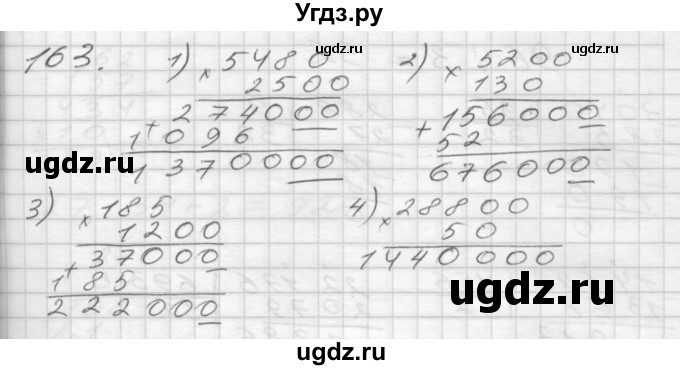 Угдз.ру
163. 1) × 5480
2500
274000
+ 1096
13700000
2) × 5200
130
156000
+ 52
676000
3) × 185
1200
37000
+ 185
222000
4) × 28800
50
1440000
ugdz.ru
ugdz.ru
ugdz.ru
ugdz.ru
ugdz.ru
ugdz.ru